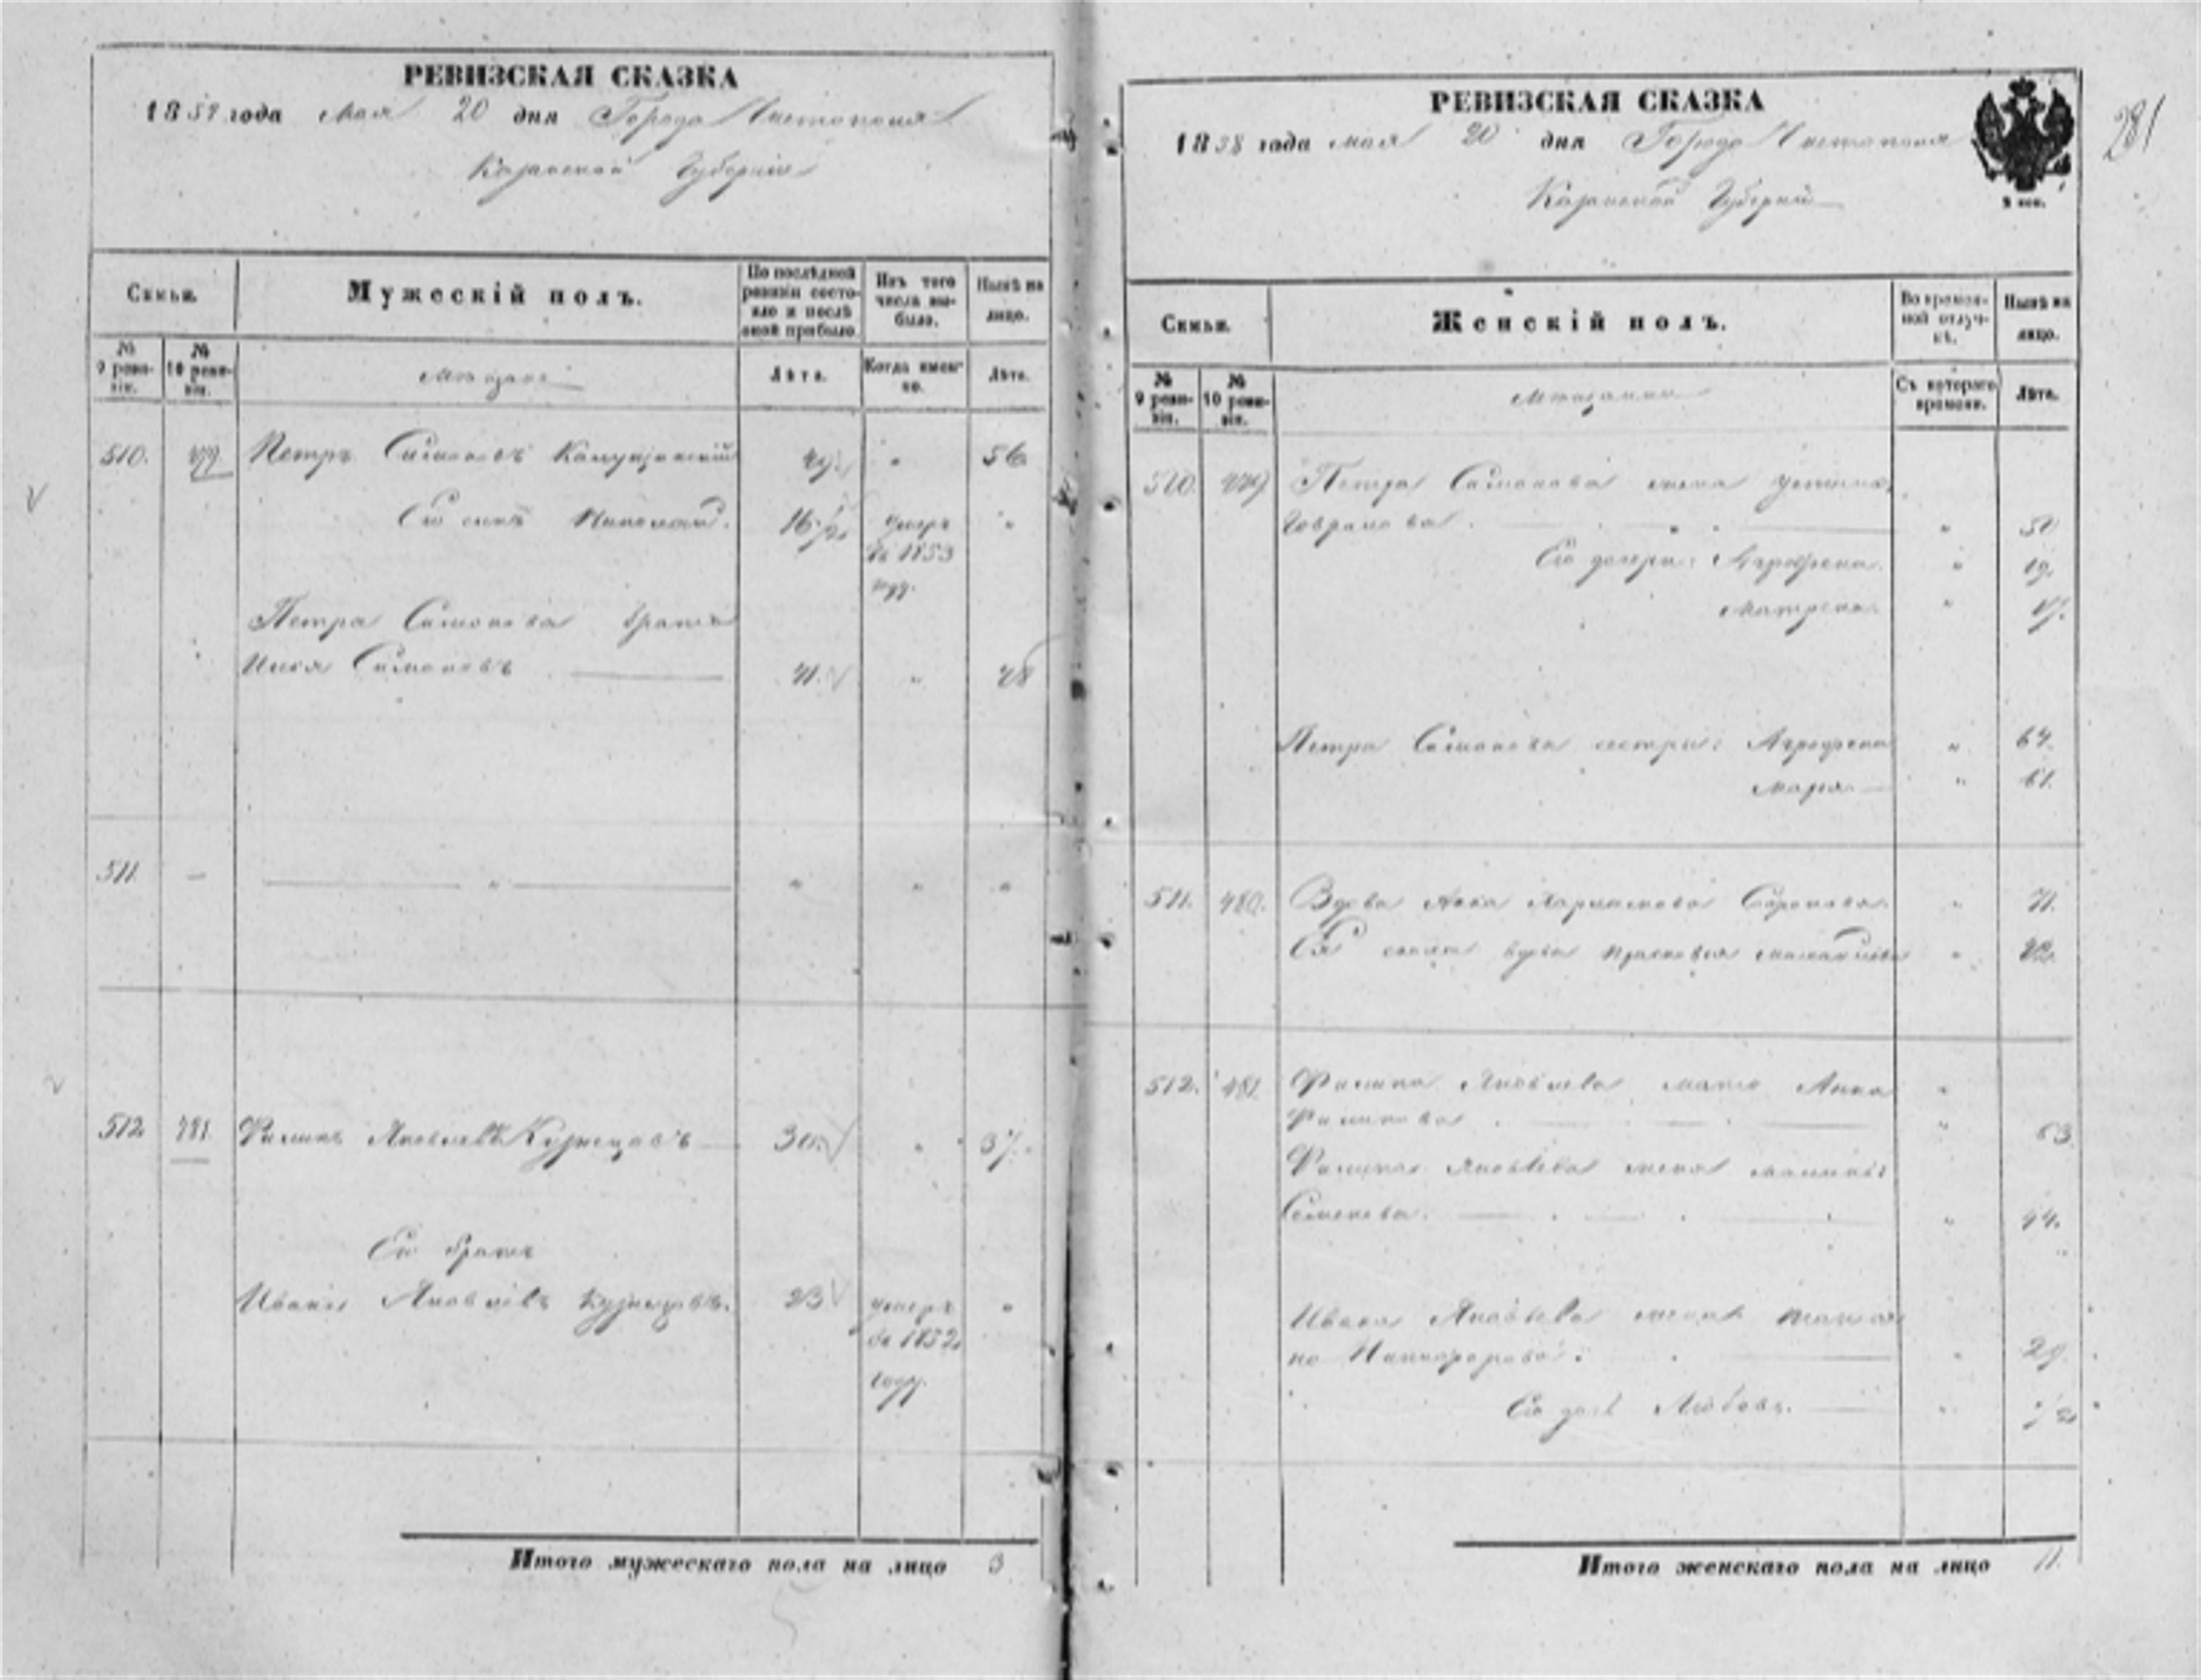 РЕВИЗСКАЯ СКАЗКА
1858 года мая 20 дня Города Чистополя
Казанской Губернии
Семьи.
Мужескій полъ.
По послѣдней ревизіи состояло и послѣ оной прибыло.
Изъ того числа выбыло.
Нынѣ на лицо.
№ 9 ревизіи.
№ 10 ревизіи.
Мѣщане
Лѣта.
Когда именно.
Лѣта.
510. 479 Петръ Симоновъ 49 " 56
Его сынъ Николай. 16 1/2 умеръ "
въ 1853
году.
Петра Симонова братъ
Илья Симоновъ 41. " 48
511. — " " " "
512 481 Филипъ Яковлевъ Кузнецовъ 30. " 37.
Его братъ
Иванъ Яковлевъ Кузнецовъ. 23 умеръ "
въ 1852
году.
Итого мужескаго пола на лицо 3
РЕВИЗСКАЯ СКАЗКА
281
1858 года мая 20 дня Города Чистополя
Казанской Губернии
Семьи.
Женскій полъ.
Во временной отлучкѣ.
Нынѣ на лицо.
№ 9 ревизіи.
№ 10 ревизіи.
Мѣщанки
Съ котораго времени.
Лѣта.
510. 479 Петра Симонова жена Устинья
Гаврилова. "
Его дочери: Агрофена. " 19.
Матрена. " 17.
Петра Симонова сестры: Агрофена " 64.
Марья. " 61.
511. 480. Вдова Анна " 71.
Ея вдова Прасковья "
512. 481. Филипа Яковлева мать Анна "
Филипова. " 63.
Филипа Яковлева жена
Семенова. " 44.
Ивана Яковлева жена
Никифорова. " 29.
Его дочь Любовь. "
Итого женскаго пола на лицо 11.